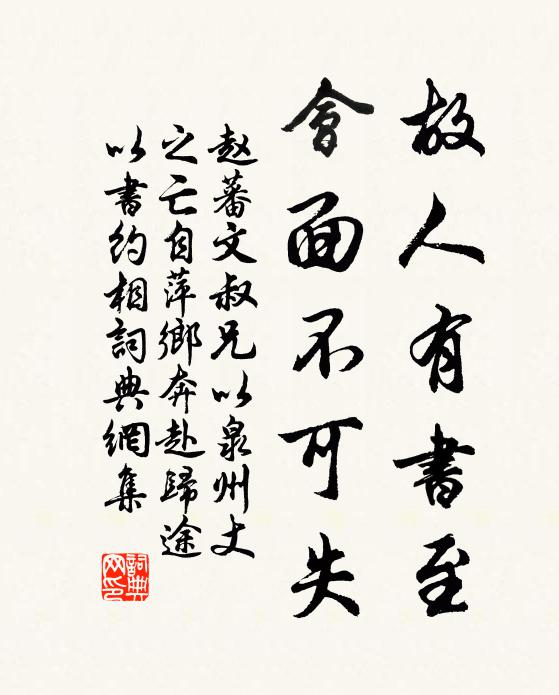 故人有書至
會面不可失
赵蕃文叔兄以泉州丈
之亡自萍鄉奔赴歸途
以書約相詞典網集
詞典
网印